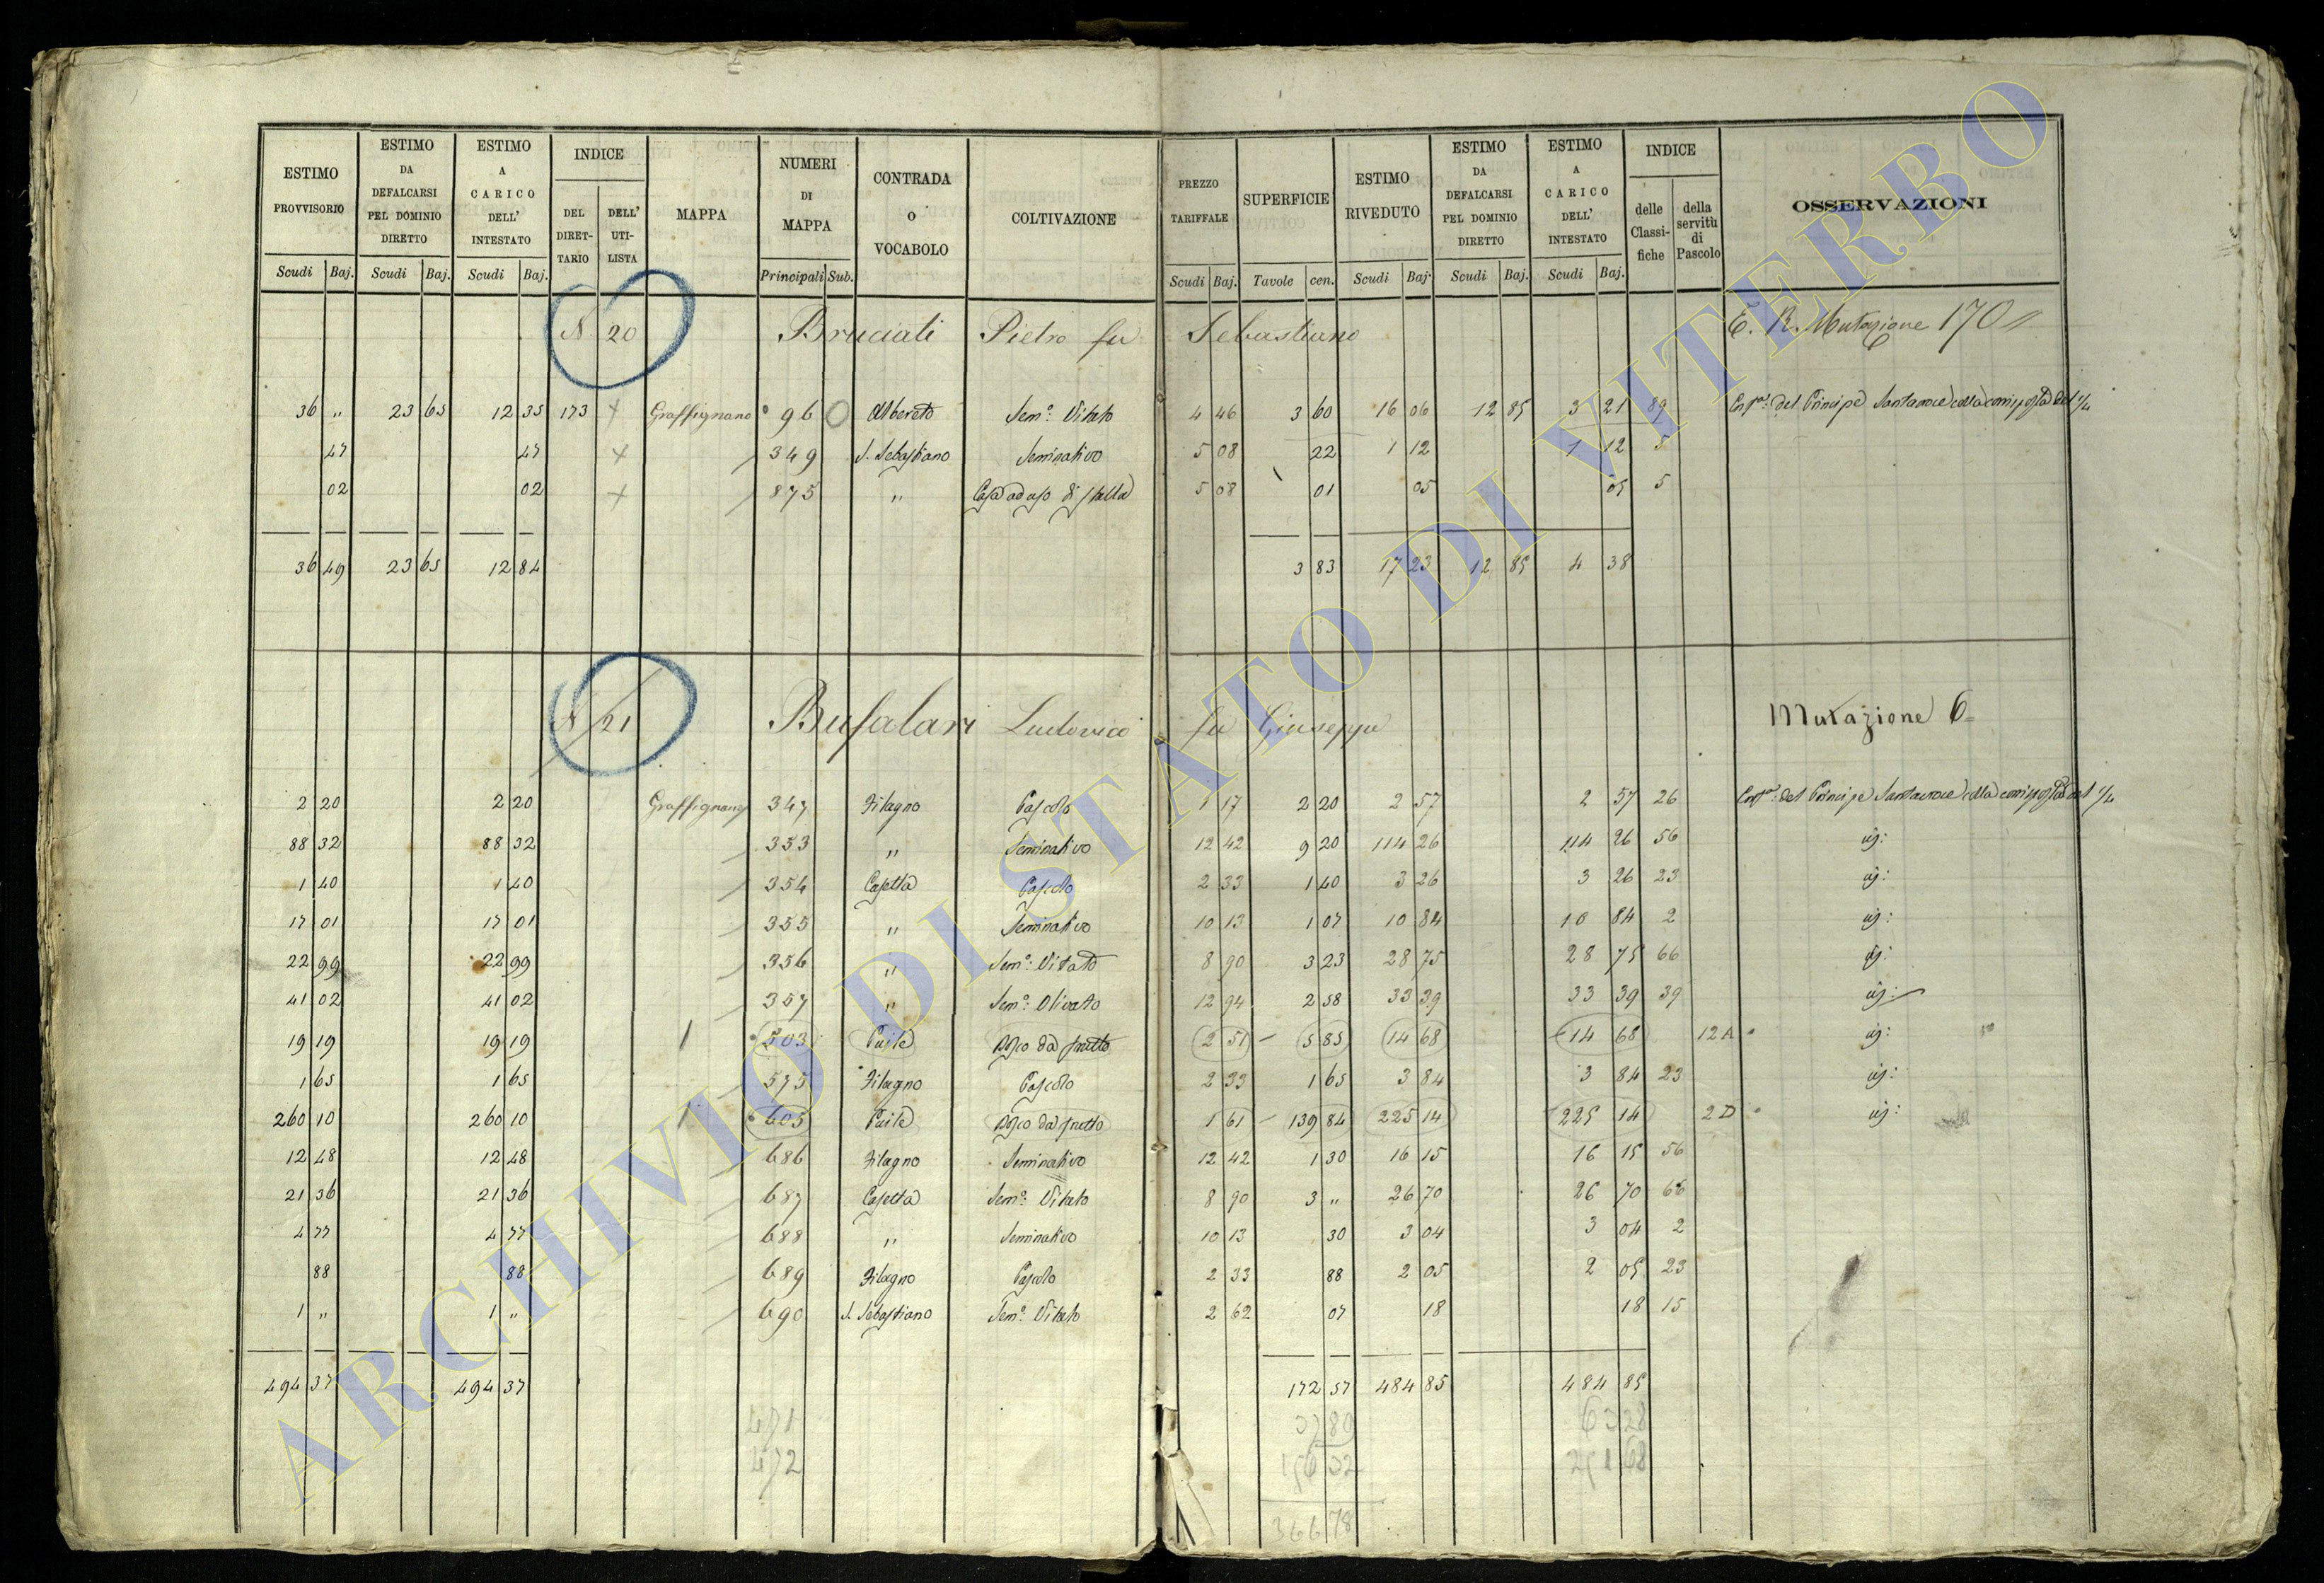 ESTIMO PROVVISORIO | ESTIMO DA DEFALCARSI PEL DOMINIO DIRETTO | ESTIMO A CARICO DELL' INTESTATO | INDICE | MAPPA | NUMERI DI MAPPA | CONTRADA O VOCABOLO | COLTIVAZIONE | PREZZO TARIFFALE | SUPERFICIE | ESTIMO RIVEDUTO | ESTIMO DA DEFALCARSI PEL DOMINIO DIRETTO | ESTIMO A CARICO DELL' INTESTATO | INDICE | OSSERVAZIONI
DEL DIRET-TARIO | DELL' UTI-LISTA | delle Classi-fiche | della servitù di Pascolo
Scudi Baj. | Scudi Baj. | Scudi Baj. | Principali Sub. | Scudi Baj. | Tavole cen. | Scudi Baj. | Scudi Baj. | Scudi Baj.
N 20 Bruciati Pietro fu Sebastiano E. R. Mutazione 170
36 " 23 65 12 35 173 Graffignano 96 Albereto Sem.o Vitato 4 46 3 60 16 06 12 85 3 21 89 del Principe Santacroce colla corrisposta del 1/4
47 47 349 S. Sebastiano Seminativo 5 08 22 1 12 1 12 5
02 02 875 " Casa ad uso di stalla 5 08 01 05 05 5
36 49 23 65 12 84 3 83 17 23 12 85 4 38
N 21 Bufalari Ludovico fu Giuseppe Mutazione 6
2 20 2 20 Graffignano 347 Filagno Pascolo 1 17 2 20 2 57 2 57 26 del Principe Santacroce colla corrisposta del 1/4
88 32 88 32 353 " Seminativo 12 42 9 20 114 26 114 26 56
1 40 1 40 354 Casetta Pascolo 2 33 1 40 3 26 3 26 23
17 01 17 01 355 " Seminativo 10 13 1 07 10 84 10 84 2
22 99 22 99 356 " Sem.o Vitato 8 90 3 23 28 75 28 75 66
41 02 41 02 357 " Sem.o Olivato 12 94 2 58 33 39 33 39 39
19 19 19 19 503 Puile Bosco da frutto 2 51 5 85 14 68 14 68 12A
1 65 1 65 575 Filagno Pascolo 2 33 1 65 3 84 3 84 23
260 10 260 10 605 Puile Bosco da frutto 1 61 139 84 225 14 225 14 2D
12 48 12 48 686 Filagno Seminativo 12 42 1 30 16 15 16 15 56
21 36 21 36 687 Casetta Sem.o Vitato 8 90 3 " 26 70 26 70 66
4 77 4 77 688 " Seminativo 10 13 30 3 04 3 04 2
88 88 689 Filagno Pascolo 2 33 88 2 05 2 05 23
1 " 1 " 690 S. Sebastiano Sem.o Vitato 2 62 07 18 18 15
494 37 494 37 172 57 484 85 484 85
471
472
366 78
ARCHIVIO DI STATO DI VITERBO